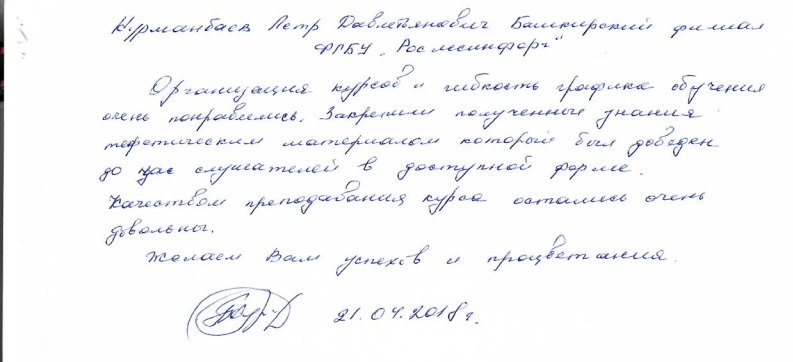 Нурманбаев Петр Давлетьянович Башкирский филиал
ФГБУ „Рослесинфорг“
Организация курсов и гибкость графика обучения
очень понравились. Закрепили полученные знания
теоретическим материалом который был доведен
до нас слушателей в доступной форме.
Качеством преподавания курса остались очень
довольны.
Желаем Вам успехов и процветания.
21.04.2018г.